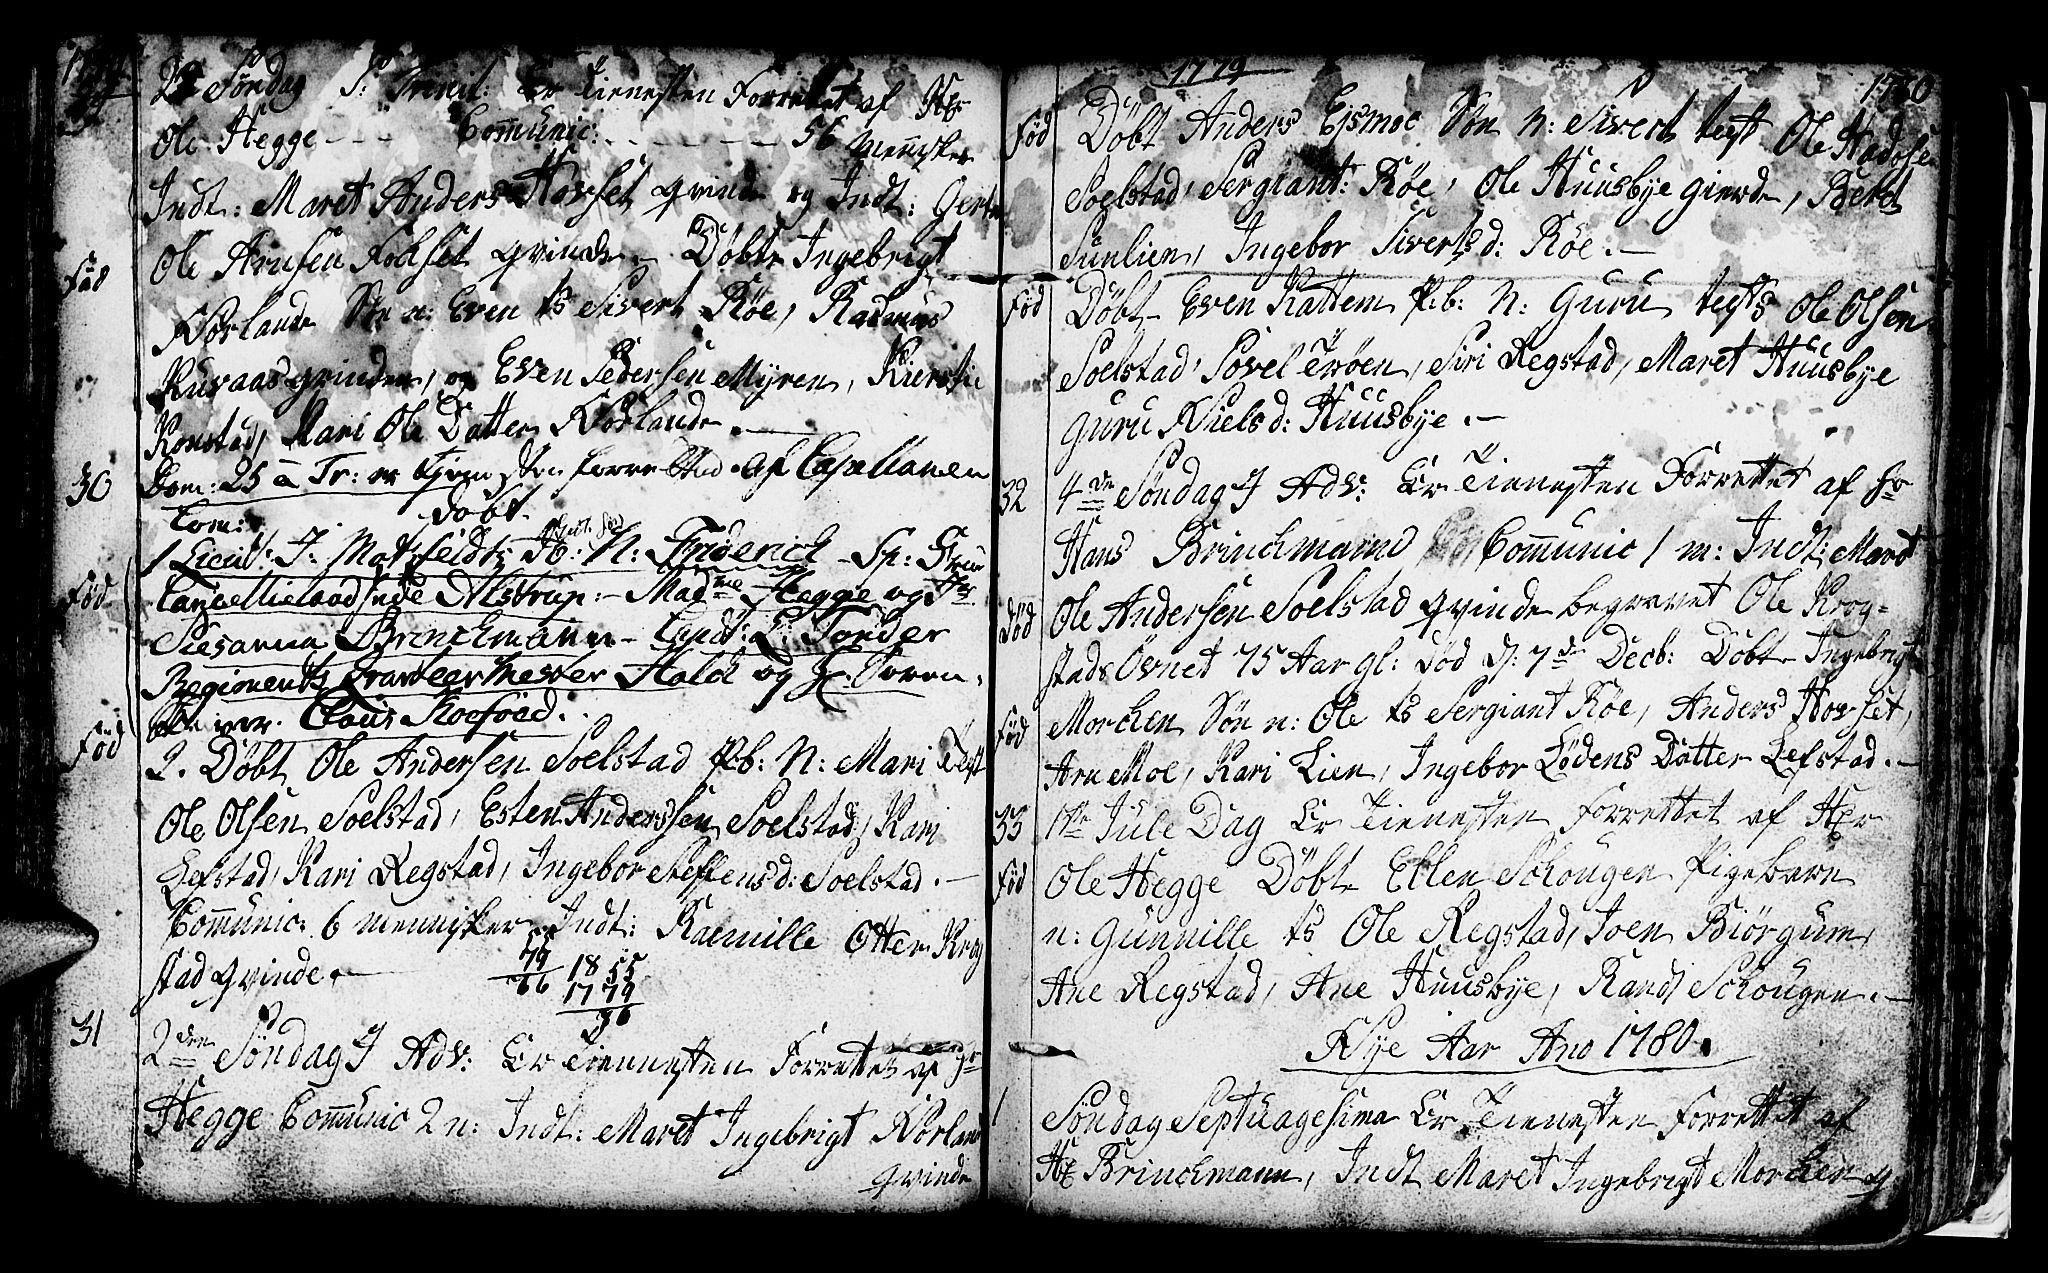 1779
29
22 Søndag S: Trinit: Er Tienesten Forrettet af Hr
Ole Hegge - - - Communic: - - - - - 56 Mennisker
Indt: Maret Anders Hovset qvinde og Indt: Gertru
Ole Arnsen Kolset qvinde - Døbt Ingebrigt
Fød
Norlande Søn n: Even ts Sivert Røe, Rasmus
Ruvaas grinden, og Even Pedersen Myren, Kiersti
Ronstad, Mari Ole Datter Norlande. -
30 Dom: 25 a Tr: er tienesten forrettet af Capellanen
Com: døbt.
1 Lieut: J: Motzfeldtz H: N: Friderich - Sp: Frue
Fød Cancellieraadinde Alstrup: - Madme Hegge og Jfr
Susanna Brinchmann - Cand: L: Tønder
Regiments Qvarteermester Holch og Hr. Soren-
skriver Claus Koefoed.
Fød 2. Døbt Ole Andersen Soelstad P.b: N: Mari Test
Ole Olsen Soelstad, Esten Anderssen Soelstad, Kari
Lefstad, Kari Regstad, Ingebor Steffens d: Soelstad. -
Communic: 6 mennisker Indt: Raennille Otter Krog
stad qvinde. -
55
79
76
18 55
17 79
76
31 2den Søndag J Adv: Er Tiennesten Forrettet af Hr
Hegge Communic 2 n: Indt: Maret Ingebrigt Norland
qvinde
1779
1780
Fød Døbt Anders Ejsmoe Søn n: Sivert test Ole Hadose
Soelstad, Sergiant: Røe, Ole Huusbye gierde, Beret
Sunlien, Ingebor Siverts d: Røe. -
Fød Døbt Even Kattem P:b: N: Guru tests Ole Olsen
Soelstad, Povel Trøen, Siri Regstad, Maret Huusbye
Guru Niels d: Huusbye. -
32 4de Søndag J Adv: Er Tienesten Forrettet af Hr
Hans Brinchmand Communic 1 m: Indt: Maret
Død Ole Andersen Soelstad qvinde begravet Ole Krog-
stads Øvnet 75 Aar gl: død d: 7de Decb: Døbt Ingebrigt
Fød Morchen Søn n: Ole ts Sergiant Røe, Anders Hovset,
Arn Moe, Kari Lien, Ingebor Lødens Datter Lefstad. -
33 1ste Jule Dag Er Tienesten Forrettet af Hr
Fød Ole Hegge Døbt Ellen Schougen Pigebarn
n: Gunnille ts Ole Regstad, Joen Biørgum,
Ane Regstad, Ane Huusbye, Randi Schougen. -
Nye Aar Ano 1780.
1 Søndag Septuagesima Er Tienesten Forrettet af
Hr Brinchmann, Indt Maret Ingebrigt Morchen q